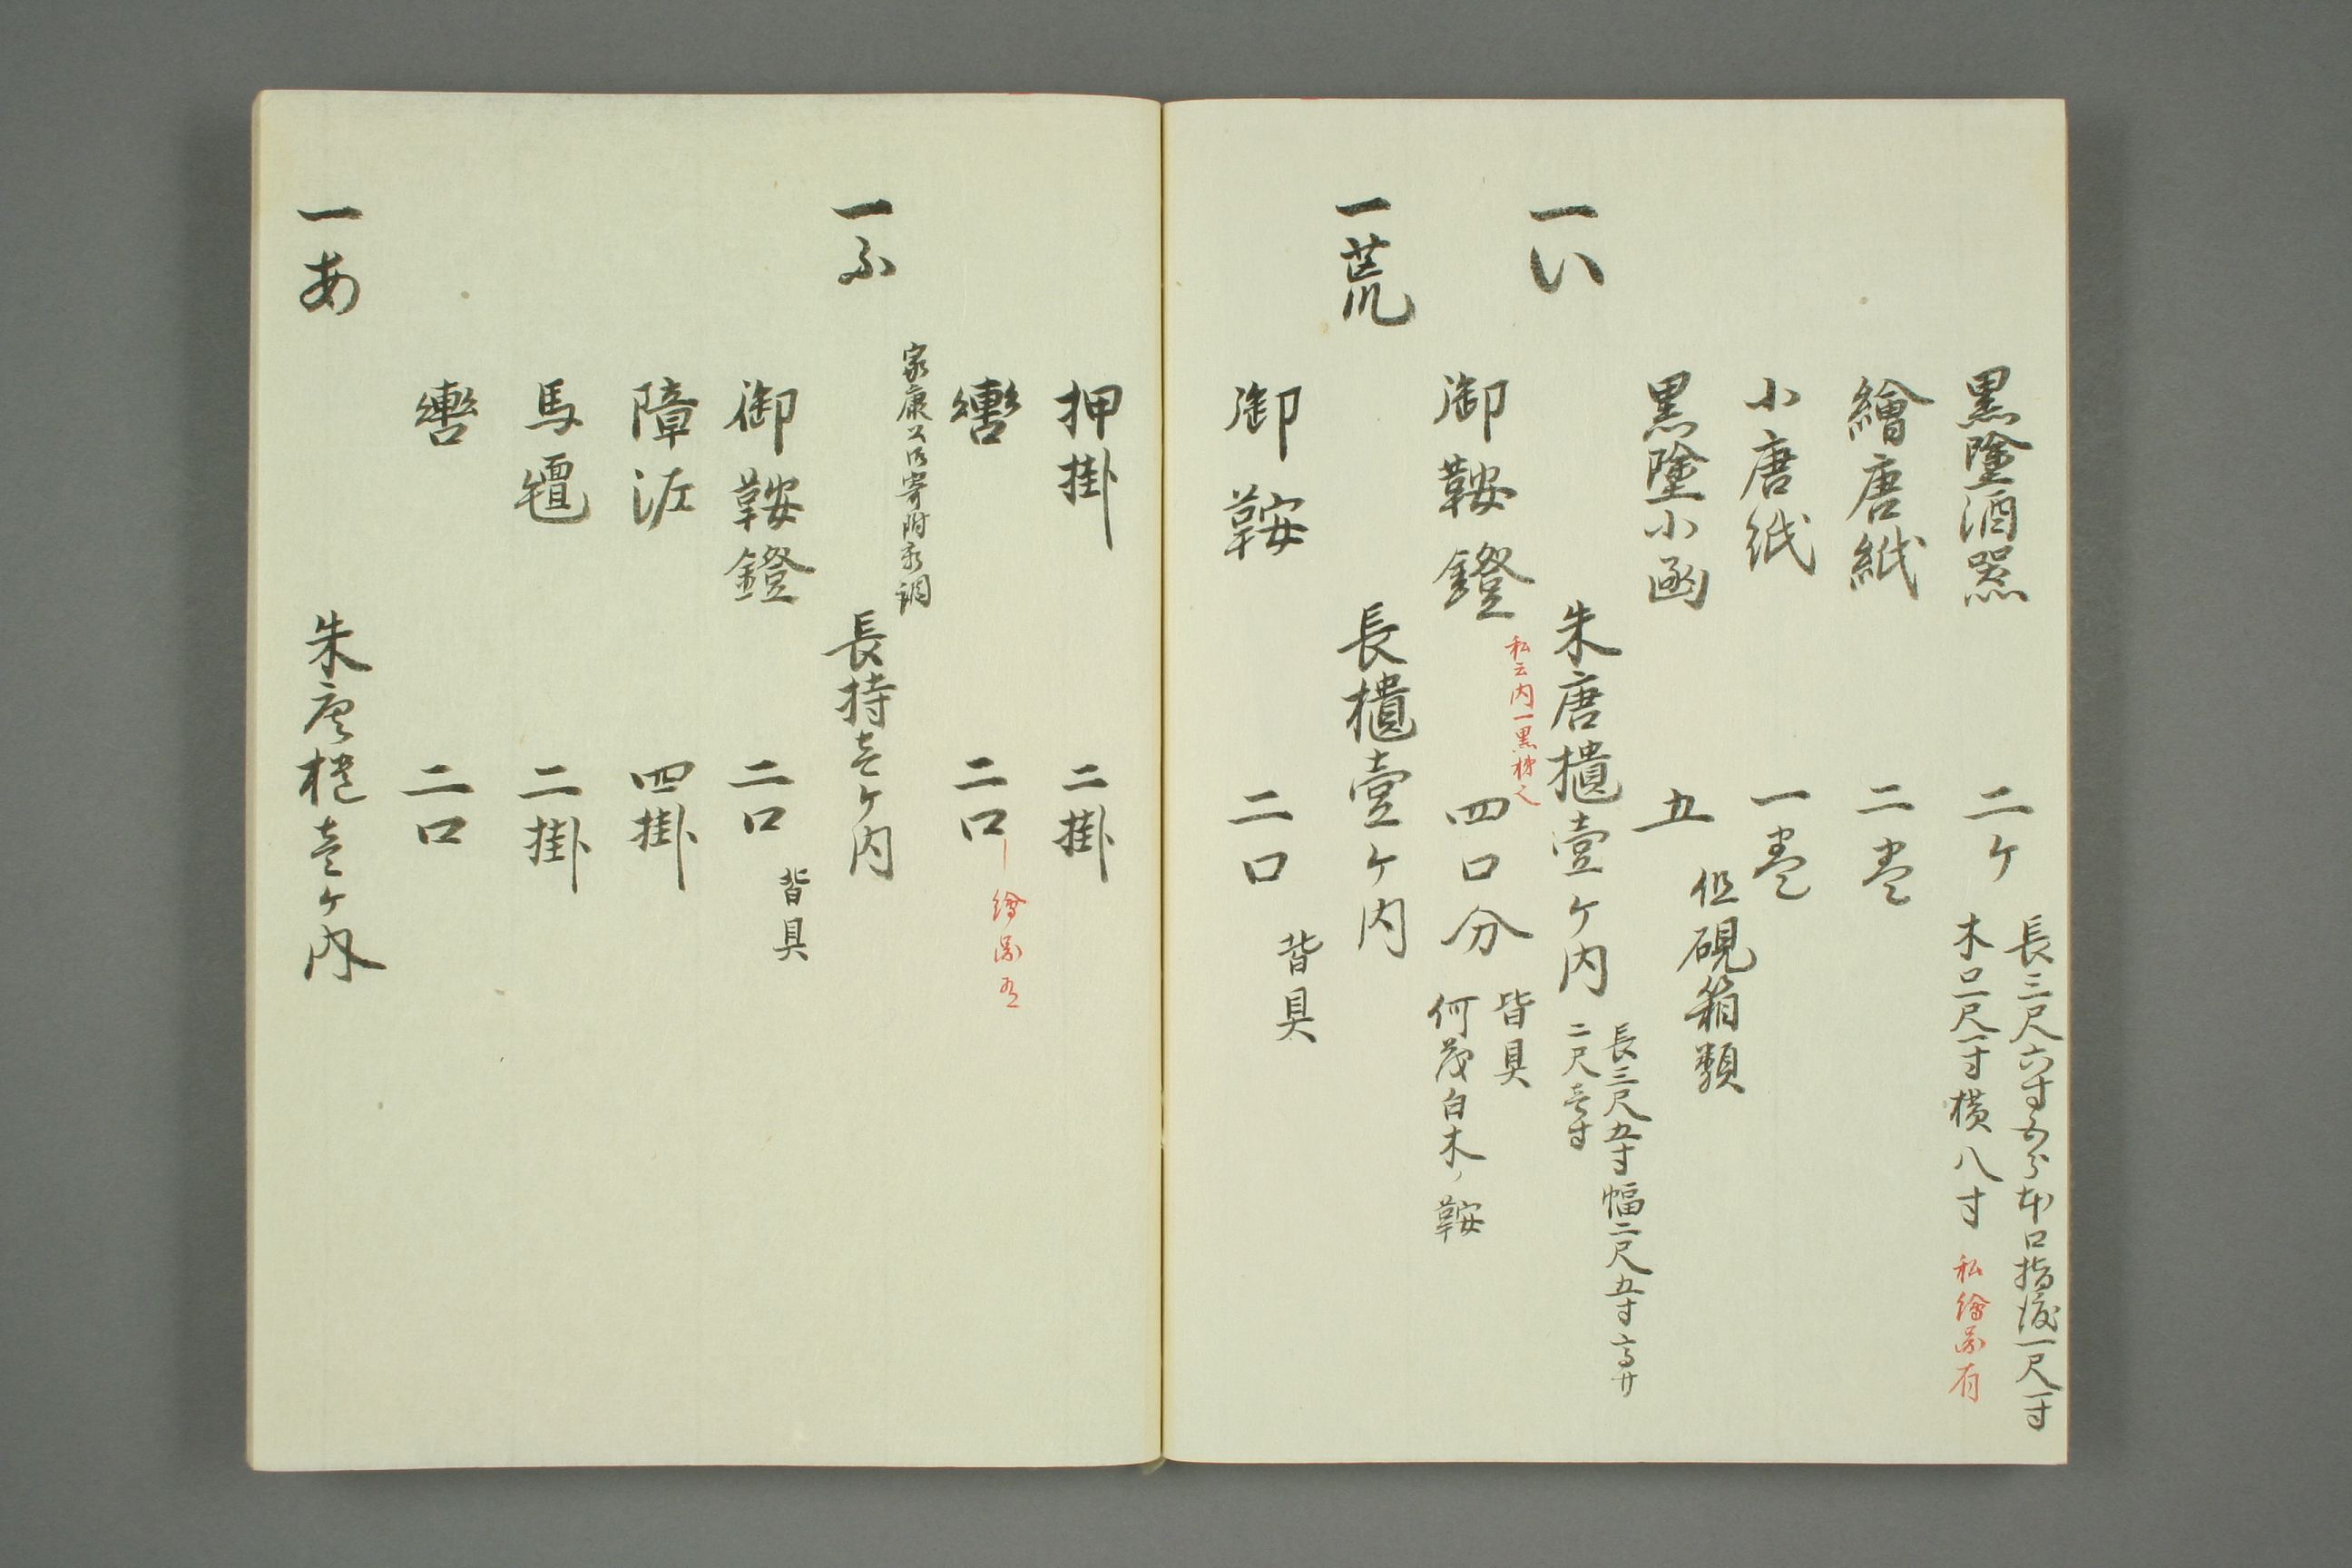 黒塗酒器 二ケ 長三尺六寸五分木口指渡一尺一寸
木口一尺一寸横八寸 私繪圖有
繪唐紙 二巻
小唐紙 一巻
黒塗小函 五 但硯箱類
一い 朱唐櫃壹ケ内 長三尺五寸幅二尺五寸高サ
二尺壱寸
私云内一黒柿也
御鞍鐙 四口分 皆具
何茂白木ノ鞍
一荒 長櫃壹ケ内
御鞍 二口 皆具
押掛 二掛
轡 二口 繪圖有
家康公御寄附永調
一ふ 長持壱ケ内
御鞍鐙 二口 皆具
障泥 四掛
馬氈 二掛
轡 二口
一あ 朱唐櫃壱ケ内